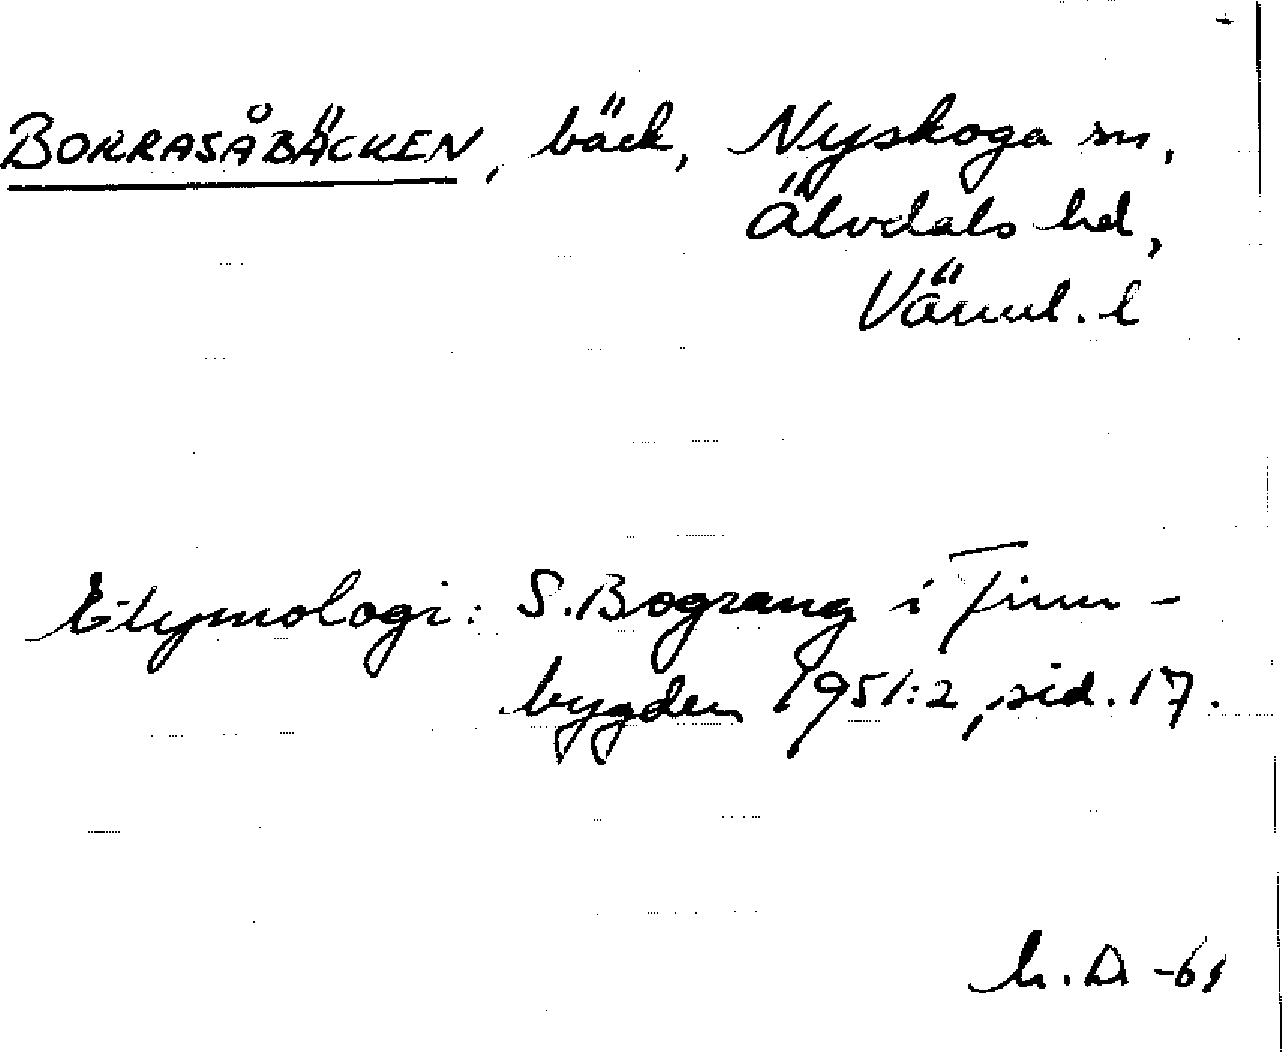 BORRASÅBÄCKEN, bäck, Nyskoga sn,
Älvdals hd,
Värml. l
Etymologi: S. Bograng i Finn-
bygden 1951:2, sid. 17.
-61